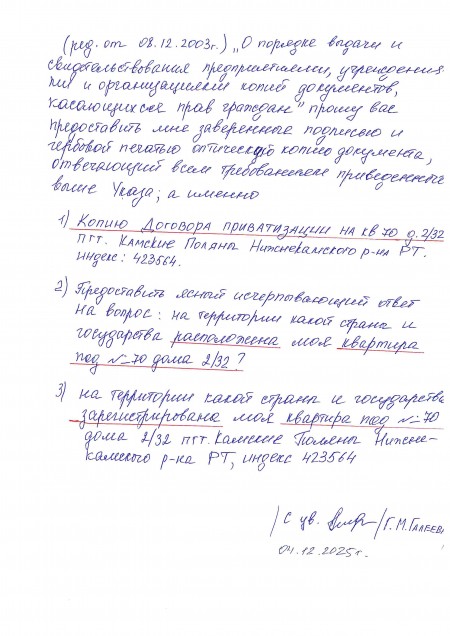 (ред. от 08.12.2003г.) „О порядке выдачи и
свидетельствования предприятиями, учреждения-
ми и организациями копий документов,
касающихся прав граждан" прошу вас
предоставить мне заверенные подписью и
гербовой печатью оптическую копию документа,
отвечающий всем требованиям приведенного
выше Указа; а именно
1) Копию Договора приватизации на кв 70 д. 2/32
пгт. Камские Поляны Нижнекамского р-на РТ.
индекс: 423564.
2) Предоставить ясный исчерпывающий ответ
на вопрос: на территории какой страна и
государства расположена моя квартира
под №70 дома 2/32?
3) на территории какой страна и государства
зарегистрирована моя квартира под №70
дома 2/32 пгт. Камские Поляна Нижне-
камского р-на РТ, индекс 423564
/С ув. /Г.М.Галеева
04.12.2025г.